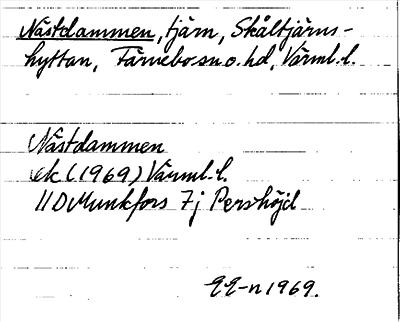 Nästdammen, tjärn, Skåltjärns-
hyttan, Färnebo sn o. hd, Värml. l.
Nästdammen
ek (1969) Värml. l.
11D Munkfors 7j Pershöjd
1969.